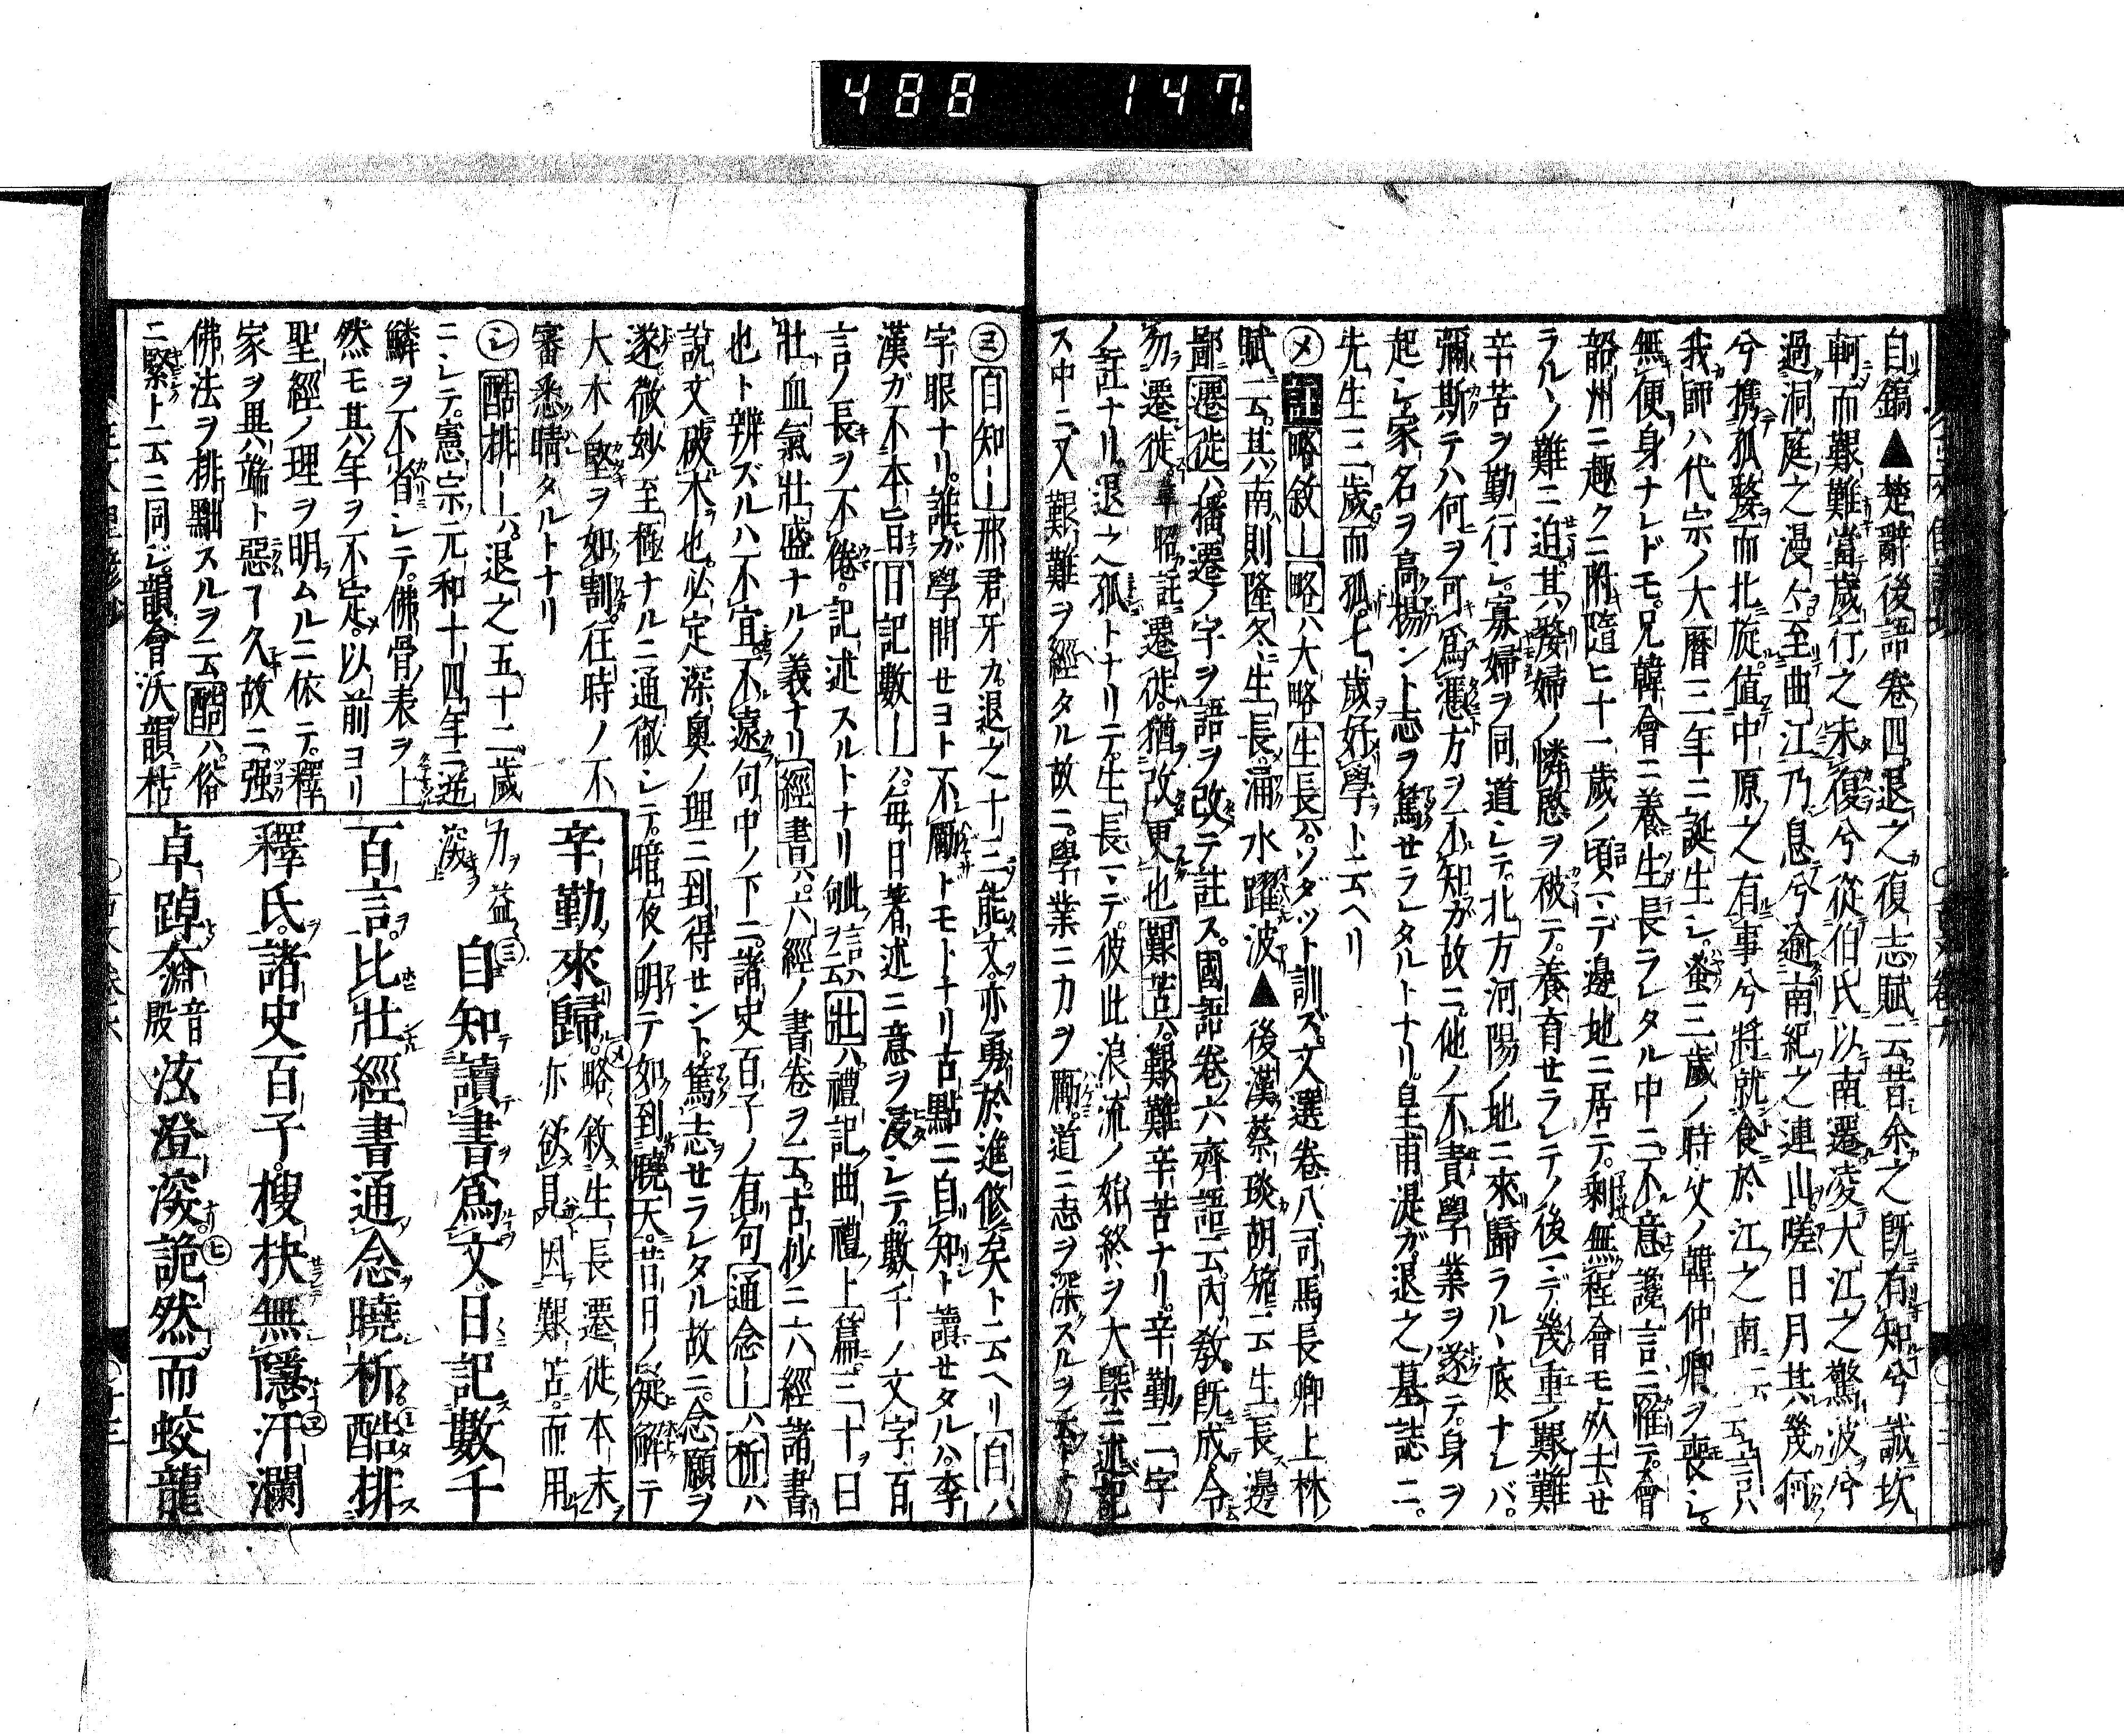 488 147
自鎬▲楚辭後語卷四退之復志賦云昔余之既有知兮誠坎
軻而艱難當歲行之未復兮從伯氏以南遷凌大江之驚波兮
過洞庭之漫々至曲江乃息兮逾南紀之連山嗟日月其幾何
兮攜孤嫠而北旋值中原之有事兮將就食於江之南云云言ハ
我師ハ代宗ノ大曆三年ニ誕生シ蚤三歲ノ時父ノ韓仲卿ヲ喪シ
無便身ナレドモ兄韓會ニ養生長ラレタル中ニ不意讒言ニ罹テ會
韶州ニ趣クニ附隨ヒ十一歲ノ頃マデ邊地ニ居テ剩無程會モ死去セ
ラルノ難ニ迫其嫠婦ノ憐愍ヲ被テ養育セラレテノ後マデ幾重ノ艱難
辛苦ヲ勤行シ寡婦ヲ同道シテ北方河陽ノ地ニ來歸ラルヽ底ナレバ
彌斯テハ何ヲ可爲憑方ヲ不知ガ故ニ他ノ不責學業ヲ遂テ身ヲ
起シ家名ヲ高揚ント志ヲ篤セラレタルトナリ皇甫湜ガ退之ノ墓誌ニ
先生三歲而孤七歲好學ト云ヘリ
㋱註略敘―略ハ大略生長ハソダツト訓ズ文選卷八司馬長卿上林
賦云其南則隆冬生長涌水躍波▲後漢蔡琰胡笳ニ云生長邊
鄙遷徙ハ播遷ノ字ヲ語ヲ改テ註ス國語卷六齊語云內教既成令
勿遷徙韋昭註遷徙猶改更也艱苦ハ艱難辛苦ナリ辛勤二字
ノ註ナリ退之孤トナリニテ生長マデ彼此浪流ノ始終ヲ大槩ニ述記
ス中ニ又艱難ヲ經タル故ニ學業ニ力ヲ勵道ニ志ヲ深スルヲ云トナリ
㋯自知―邢君牙カ退之十三能文亦勇於進修矣ト云ヘリ自ハ
字眼ナリ誰ガ學問セヨト不勵トモトナリ古點ニ自知ト讀セタルハ李
漢ガ不本旨日記數―ハ每日著述ニ意ヲ浸シテ數千ノ文字百
言ノ長ヲ不倦記述スルトナリ
壯ハ禮記曲禮上篇三十曰
壯血氣壯盛ナルノ義ナリ經書ハ六經ノ書卷ヲ云古抄ニ六經諸書
也ト辨ズルハ不宜不遠句中ノ下ニ諸史百子ノ有句通念―ハ析ハ
說文破木也必定深奧ノ理ニ到得セント篤志セラレタル故ニ念願ヲ
遂微妙至極ナルニ通徹シテ暗夜ノ明テ如到曉天昔日ノ疑解テ
大木ノ堅ヲ如割往時ノ不
審悉晴タルトナリ
㋛酷排―ハ退之五十二歲
ニシテ憲宗元和十四年ニ逆
鱗ヲ不省シテ佛骨表ヲ上
然モ其年ヲ不定以前ヨリ
聖經ノ理ヲ明ムルニ依テ釋
家ヲ異端ト惡ー久故ニ強
佛法ヲ排黜スルヲ云酷ハ俗
ニ緊ト云ニ同ジ韻會沃韻枯
辛勤來歸㋱略敘生長遷徙本末
亦欲見因艱苦而用
力益
深
㋯自知讀書爲文日記數千
百言比壯經書通念曉析酷排
釋氏諸史百子搜抉無隱汗瀾
卓踔奫音
殿泫澄深詭然而蛟龍